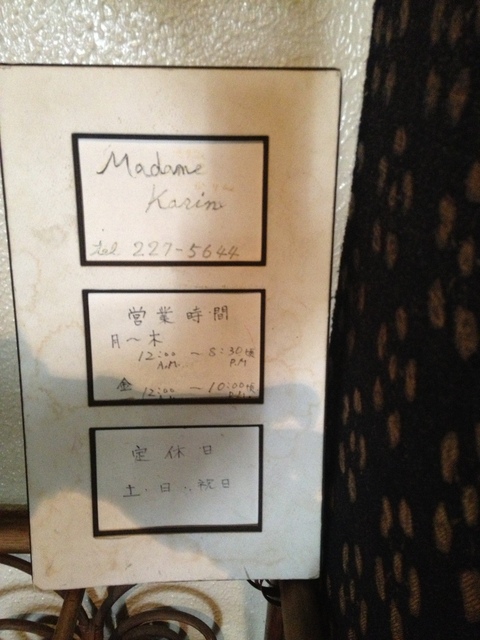 Madame
Karin
tel. 227-5644
営業時間
月〜木
12:00 〜 8:30頃
A.M P.M
金 12:00 〜 10:00頃
定休日
土.日.祝日